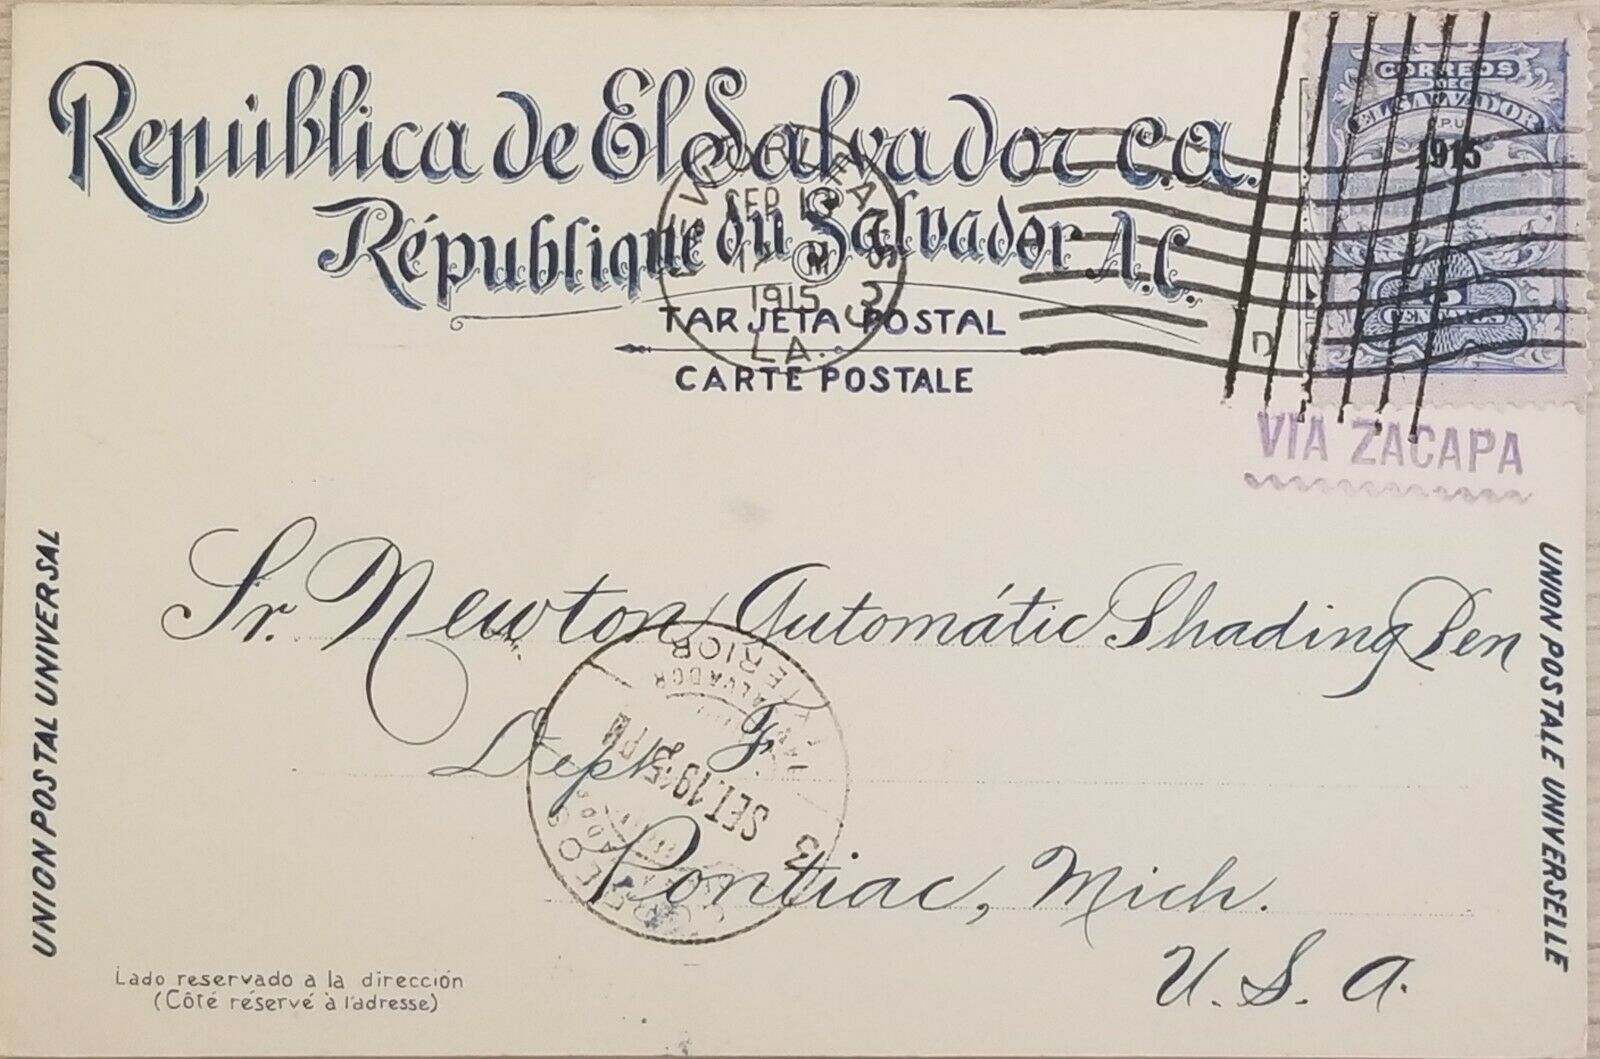 República de El Salvador C.A.
République du Salvador A.C.
TARJETA POSTAL
CARTE POSTALE
CORREOS
DE
EL SALVADOR
U.P.U.
1915
CENTAVOS
NEW ORLEANS
SEP
1915
LA.
D
VIA ZACAPA
UNION POSTAL UNIVERSAL
UNION POSTALE UNIVERSELLE
Sr. Newton Automátic Shading Pen
Dept F.
Pontiac, Mich.
U.S.A.
3 SET.1915
Lado reservado a la dirección
(Côté réservé à l'adresse)